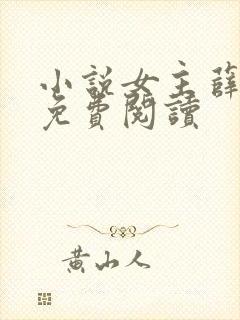 小說女主薛
免費閱讀
黃山人